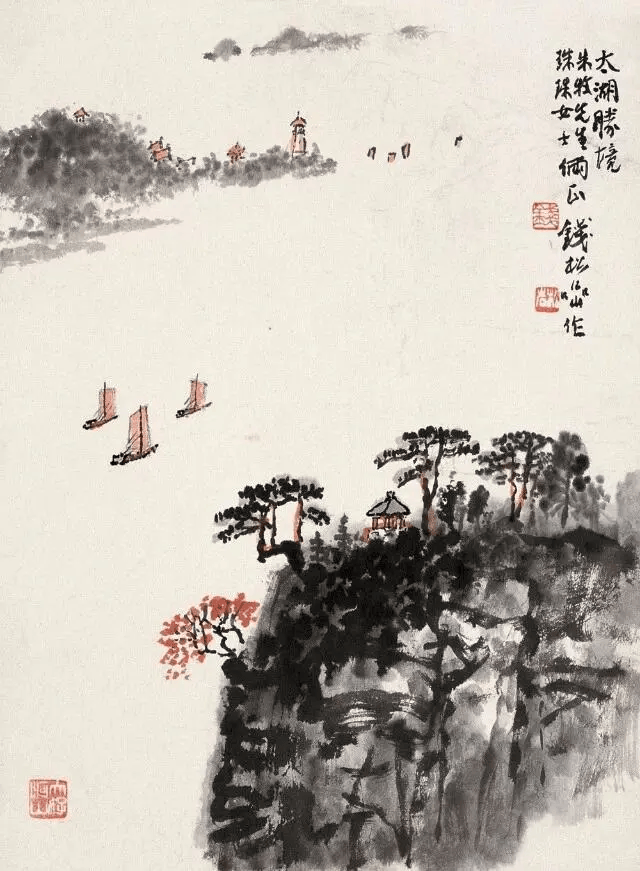 太湖勝境
朱牧先生
珠珠女士倆正 錢松喦作